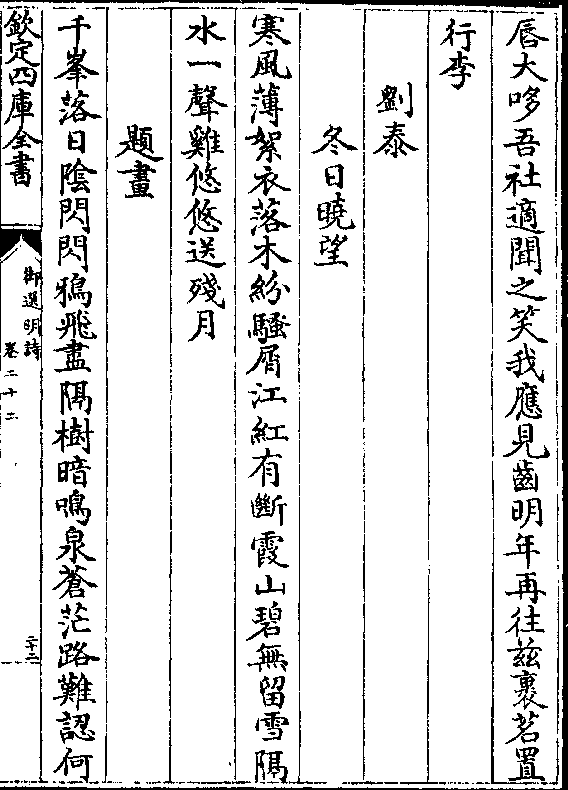 唇大哆吾社適聞之笑我應見齒明年再往兹裹茗置
行李
劉泰
冬日曉望
寒風薄絮衣落木紛騷屑江紅有斷霞山碧無留雪隔
水一聲雞悠悠送殘月
題畫
千峯落日陰閃閃鴉飛盡隔樹暗鳴泉蒼茫路難認何
欽定四庫全書
御選明詩
卷二十二
二十二